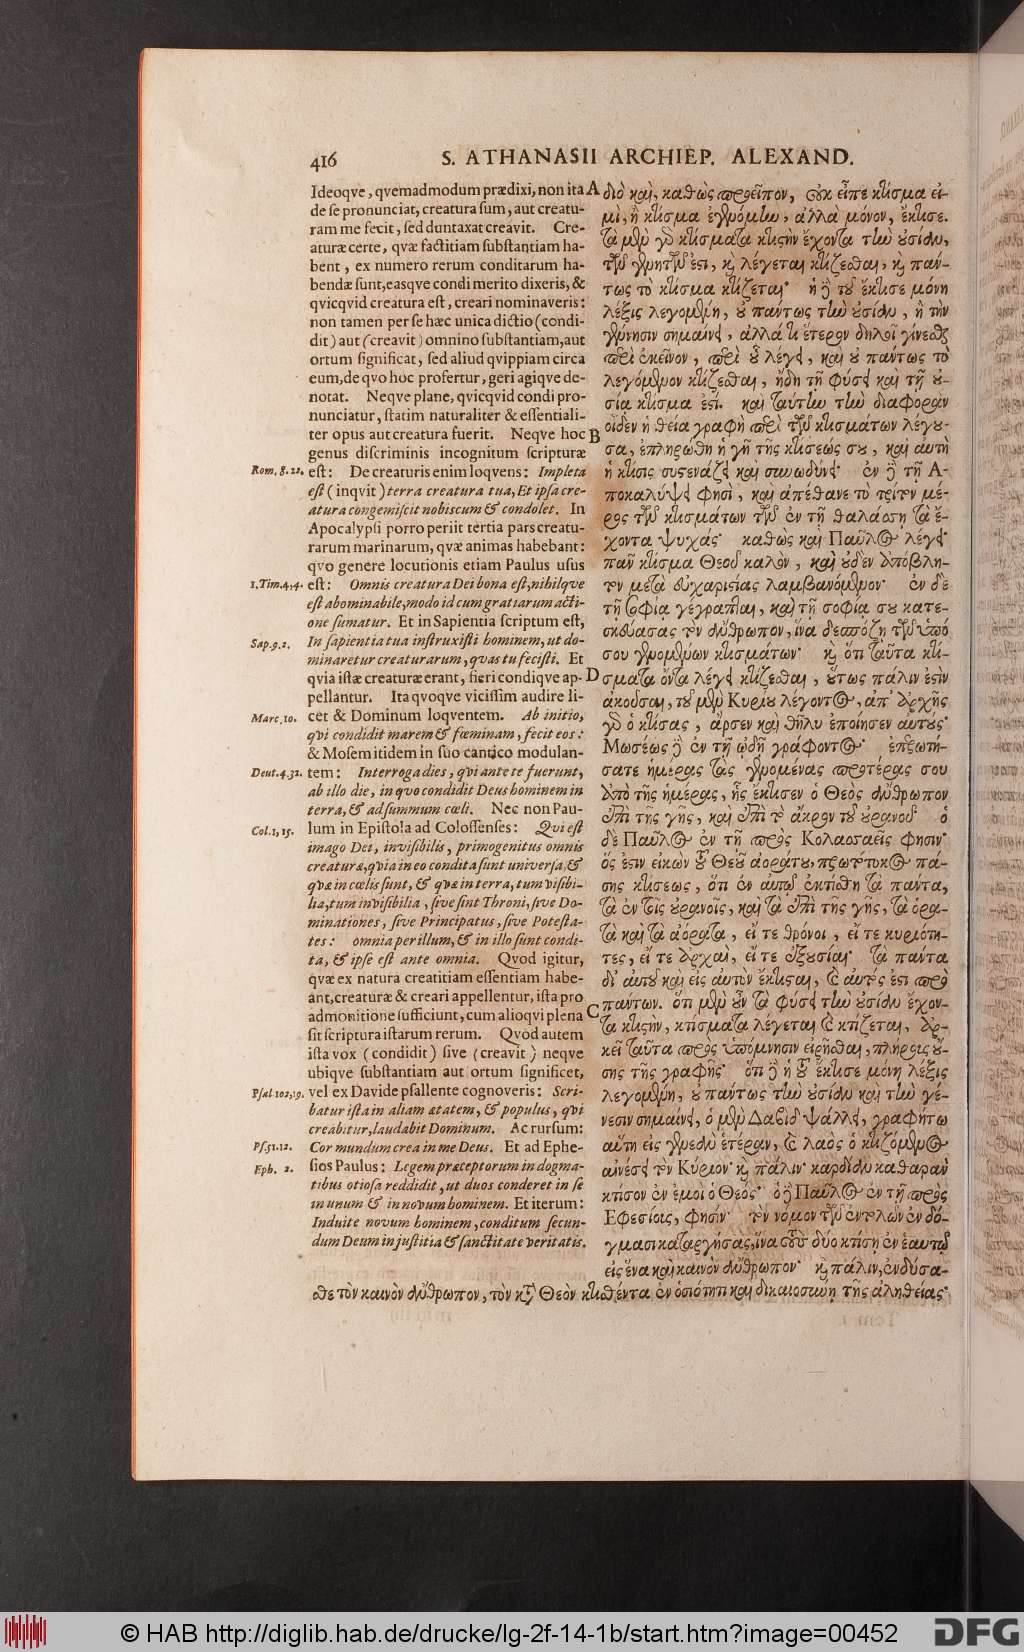 416 S. ATHANASII ARCHIEP. ALEXAND.
Ideoqve, qvemadmodum prædixi, non ita
de se pronunciat, creatura sum, aut creatu-
ram me fecit, sed duntaxat creavit. Cre-
aturæ certe, qvæ factitiam substantiam ha-
bent, ex numero rerum conditarum ha-
bendæ sunt, easqve condi merito dixeris, &
qvicqvid creatura est, creari nominaveris:
non tamen per se hæc unica dictio (condi-
dit) aut (creavit) omnino substantiam, aut
ortum significat, sed aliud qvippiam circa
eum, de qvo hoc profertur, geri agiqve de-
notat. Neqve plane, qvicqvid condi pro-
nunciatur, statim naturaliter & essentiali-
ter opus aut creatura fuerit. Neqve hoc
genus discriminis incognitum scripturæ
Rom. 8. 22. est: De creaturis enim loqvens: Impleta
est (inqvit) terra creatura tua, Et ipsa cre-
atura congemiscit nobiscum & condolet. In
Apocalypsi porro periit tertia pars creatu-
rarum marinarum, qvæ animas habebant:
qvo genere locutionis etiam Paulus usus
1. Tim. 4, 4. est: Omnis creatura Dei bona est, nihilqve
est abominabile, modo id cum gratiarum acti-
one sumatur. Et in Sapientia scriptum est,
Sap. 9. 2. In sapientia tua instruxisti hominem, ut do-
minaretur creaturarum, qvas tu fecisti. Et
qvia istæ creaturæ erant, fieri condiqve ap-
pellantur. Ita qvoqve vicissim audire li-
Marc, 10. cet & Dominum loqventem. Ab initio,
qvi condidit marem & fœminam, fecit eos:
& Mosem itidem in suo cantico modulan-
Deut. 4. 32. tem: Interroga dies, qvi ante te fuerunt,
ab illo die, in qvo condidit Deus hominem in
terra, & ad summum cœli. Nec non Pau-
Col. 1, 15. lum in Epistola ad Colossenses: Qvi est
imago Dei, invisibilis, primogenitus omnis
creaturæ, qvia in eo condita sunt universa, &
qvæ in cœlis sunt, & qvæ in terra, tum visibi-
lia, tum invisibilia, sive sint Throni, sive Do-
minationes, sive Principatus, sive Potesta-
tes: omnia per illum, & in illo sunt condi-
ta, & ipse est ante omnia. Qvod igitur,
qvæ ex natura creatitiam essentiam habe-
ant, creaturæ & creari appellentur, ista pro
admonitione sufficiunt, cum alioqvi plena
sit scriptura istarum rerum. Qvod autem
ista vox (condidit) sive (creavit) neqve
ubiqve substantiam aut ortum significet,
Psal 102, 19. vel ex Davide psallente cognoveris: Scri-
batur ista in aliam ætatem, & populus, qvi
creabitur, laudabit Dominum. Ac rursum:
Ps. 51. 12. Cor mundum crea in me Deus. Et ad Ephe-
Eph. 2. sios Paulus: Legem præceptorum in dogma-
tibus otiosa reddidit, ut duos conderet in se
in unum & in novum hominem. Et iterum:
Induite novum hominem, conditum secun-
dum Deum in justitia & sanctitate veritatis.
A διὸ καὶ, καθὼς προεῖπον, οὐκ εἶπε κτίσμα εἰ-
μὶ, ἢ κτίσμα ἐγενόμην, ἀλλὰ μόνον, ἔκτισε.
τὰ μὲν γὸ κτίσματα κτιστὴν ἔχοντα τὴν οὐσίαν,
τῶν γενητῶν ἐστι, καὶ λέγεται κτίζεσθαι, καὶ παν-
τως τὸ κτίσμα κτίζεται· ἡ δὲ τοῦ ἔκτισε μόνη
λέξις λεγομένη, οὐ πάντως τὴν οὐσίαν, ἢ τὴν
γένεσιν σημαίνει, ἀλλά τι ἕτερον δηλοῖ γίνεσθαι
περὶ ἐκεῖνον, περὶ οὗ λέγει, καὶ οὐ πάντως τὸ
λεγόμενον κτίζεσθαι, ἤδη τῇ φύσει καὶ τῇ οὐ-
σίᾳ κτίσμα ἐστί. καὶ ταύτην τὴν διαφορὰν
B οἶδεν ἡ θεία γραφὴ περὶ τῶν κτισμάτων λέγου-
σα, ἐπληρώθη ἡ γῆ τῆς κτίσεώς σου, καὶ αὐτὴ
ἡ κτίσις συστενάζει καὶ συνωδύνει· ἐν δὲ τῇ Ἀ-
ποκαλύψει φησὶ, καὶ ἀπέθανε τὸ τρίτον μέ-
ρος τῶν κτισμάτων τῶν ἐν τῇ θαλάσσῃ τὰ ἔ-
χοντα ψυχάς· καθὼς καὶ Παῦλος λέγει·
πᾶν κτίσμα Θεοῦ καλὸν, καὶ οὐδὲν ἀπόβλη-
τον μετὰ εὐχαριστίας λαμβανόμενον· ἐν δὲ
τῇ σοφίᾳ γέγραπται, καὶ τῇ σοφίᾳ σου κατε-
σκεύασας τὸν ἄνθρωπον, ἵνα δεσπόζῃ τῶν ὑπό
σου γενομένων κτισμάτων· καὶ ὅτι ταῦτα κτί-
D σματα ὄντα λέγει κτίζεσθαι, οὕτως πάλιν ἐστὶν
ἀκοῦσαι, τοῦ μὲν Κυρίου λέγοντος, ἀπ' ἀρχῆς
γὸ ὁ κτίσας, ἄρσεν καὶ θῆλυ ἐποίησεν αὐτούς·
Μωσέως δὲ ἐν τῇ ᾠδῇ γράφοντος· ἐπερωτή-
σατε ἡμέρας τὰς γενομένας προτέρας σου
ἀπὸ τῆς ἡμέρας, ἧς ἔκτισεν ὁ Θεὸς ἄνθρωπον
ἐπὶ τῆς γῆς, καὶ ἐπὶ τὸ ἄκρον τοῦ οὐρανοῦ· ὁ
δὲ Παῦλος ἐν τῇ πρὸς Κολασσαεῖς φησιν·
ὅς ἐστιν εἰκὼν τοῦ Θεοῦ ἀοράτου, πρωτότοκος πά-
σης κτίσεως, ὅτι ἐν αὐτῷ ἐκτίσθη τὰ πάντα,
τὰ ἐν τοῖς οὐρανοῖς, καὶ τὰ ἐπὶ τῆς γῆς, τὰ ὁρα-
τὰ καὶ τὰ ἀόρατα, εἴ τε θρόνοι, εἴ τε κυριότη-
τες, εἴ τε ἀρχαὶ, εἴ τε ἐξουσίαι· τὰ πάντα
δι' αὐτοῦ καὶ εἰς αὐτὸν ἔκτισται, καὶ αὐτός ἐστι πρὸ
πάντων. ὅτι μὲν οὖν τὰ φύσει τὴν οὐσίαν ἔχον-
C τα κτιστὴν, κτίσματα λέγεται καὶ κτίζεται, ἀρ-
κεῖ ταῦτα πρὸς ὑπόμνησιν εἰρῆσθαι, πλήρους οὔ-
σης τῆς γραφῆς· ὅτι δὲ ἡ τοῦ ἔκτισε μόνη λέξις
λεγομένη, οὐ πάντως τὴν οὐσίαν καὶ τὴν γέ-
νεσιν σημαίνει, ὁ μὲν Δαβὶδ ψάλλει, γραφήτω
αὕτη εἰς γενεὰν ἑτέραν, καὶ λαὸς ὁ κτιζόμενος
αἰνέσει τὸν Κύριον· καὶ πάλιν· καρδίαν καθαρὰν
κτίσον ἐν ἐμοὶ ὁ Θεός· ὁ δὲ Παῦλος ἐν τῇ πρὸς
Ἐφεσίοις, φησίν· τὸν νόμον τῶν ἐντολῶν ἐν δό-
γμασι καταργήσας, ἵνα τοὺς δύο κτίσῃ ἐν ἑαυτῷ
εἰς ἕνα καὶ καινὸν ἄνθρωπον· καὶ πάλιν, ἐνδύσα-
σθε τὸν καινὸν ἄνθρωπον, τὸν κατὰ Θεὸν κτισθέντα ἐν ὁσιότητι καὶ δικαιοσύνῃ τῆς ἀληθείας·
© HAB http://diglib.hab.de/drucke/lg-2f-14-1b/start.htm?image=00452
DFG